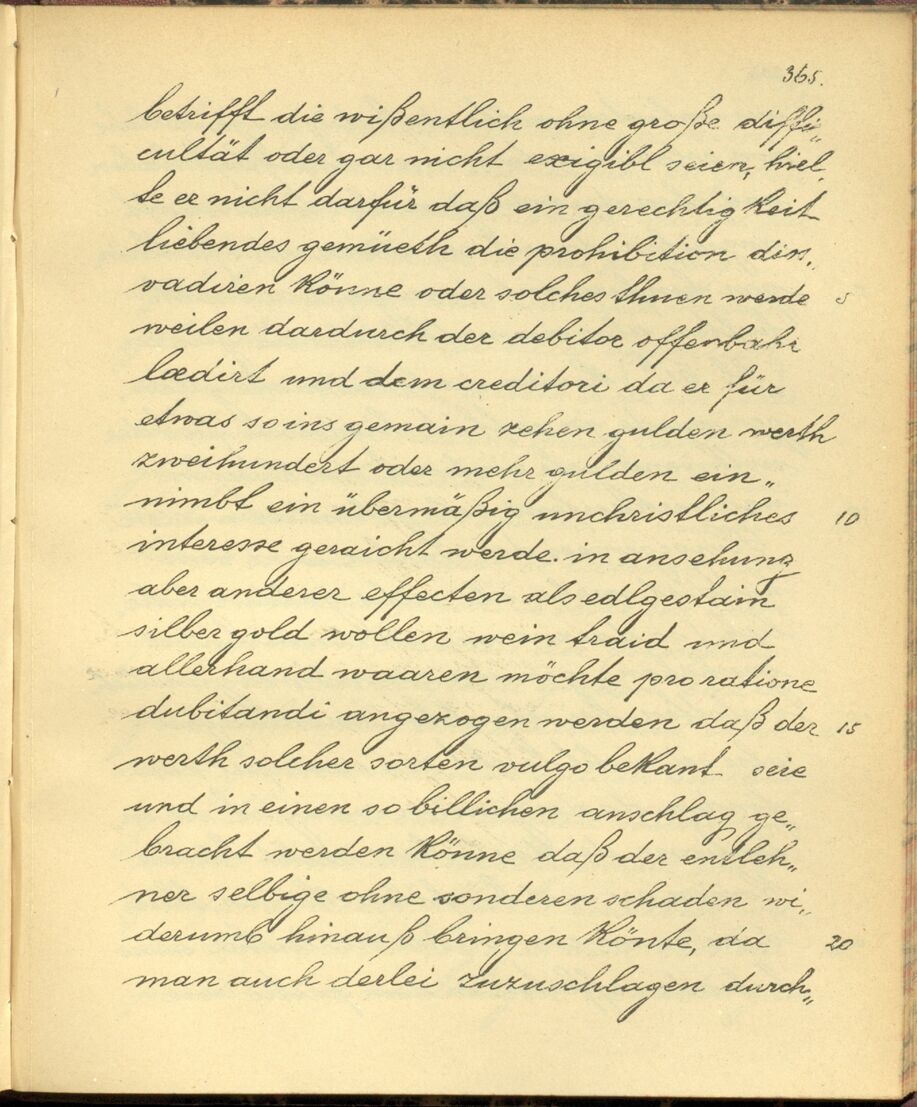 365.
betrifft die wißentlich ohne große diffi„
cultät oder gar nicht exigibl seien, hiel„
te er nicht darfür daß ein gerechtigkeit
liebendes gemüeth die prohibition dis„
vadiren könne oder solches thuen werde 5
weilen dardurch der debitor offenbahr
lædirt und dem creditori da er für
etwas so ins gemain zehen gulden werth
zweihundert oder mehr gulden ein„
nimbt ein übermäßig unchristliches 10
interesse geraicht werde. in ansehung
aber anderer effecten als edlgestain
silber gold wollen wein traid und
allerhand waaren möchte pro ratione
dubitandi angezogen werden daß der 15
werth solcher sorten vulgo bekant seie
und in einen so billichen anschlag ge„
bracht werden könne daß der entleh„
ner selbige ohne sonderen schaden wi„
derumb hinauß bringen könte, da 20
man auch derlei zuzuschlagen durch„